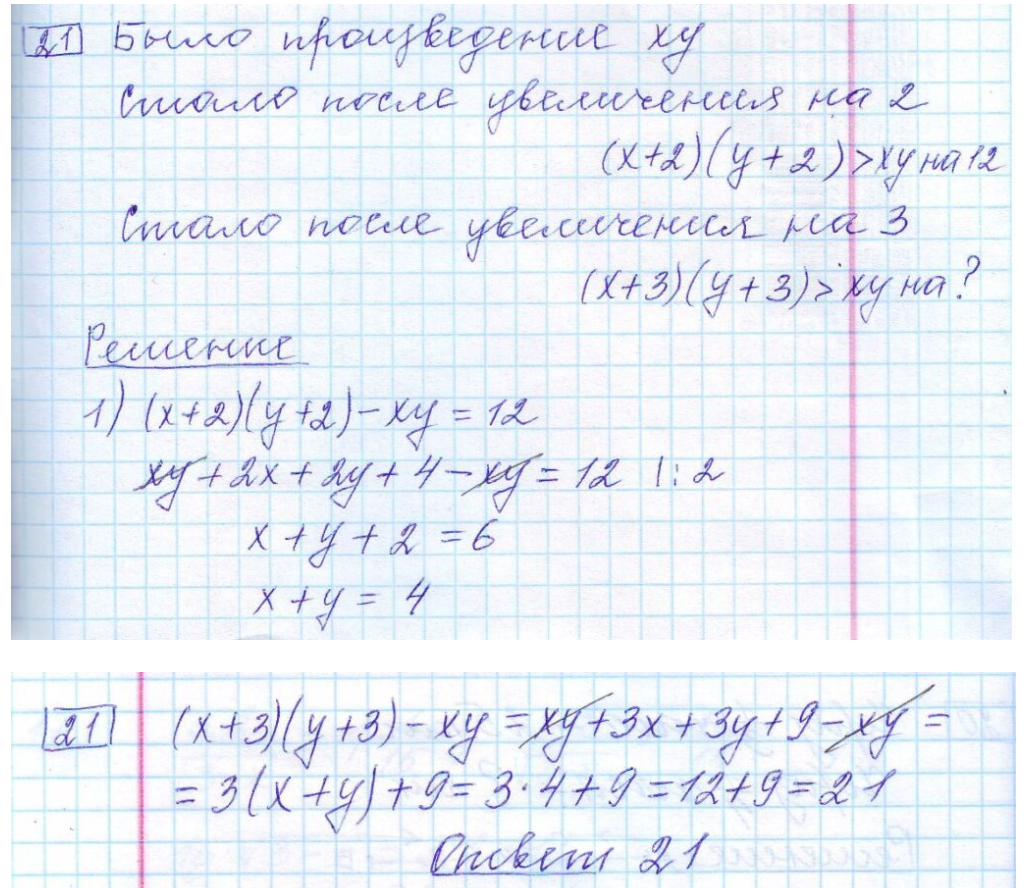 21 Было произведение xy
Стало после увеличения на 2
(x+2)(y+2)>xy на 12
Стало после увеличения на 3
(x+3)(y+3)>xy на?
Решение
1) (x+2)(y+2)-xy=12
xy+2x+2y+4-xy=12 |:2
x+y+2=6
x+y=4
21 (x+3)(y+3)-xy=xy+3x+3y+9-xy=
=3(x+y)+9=3·4+9=12+9=21
Ответ 21